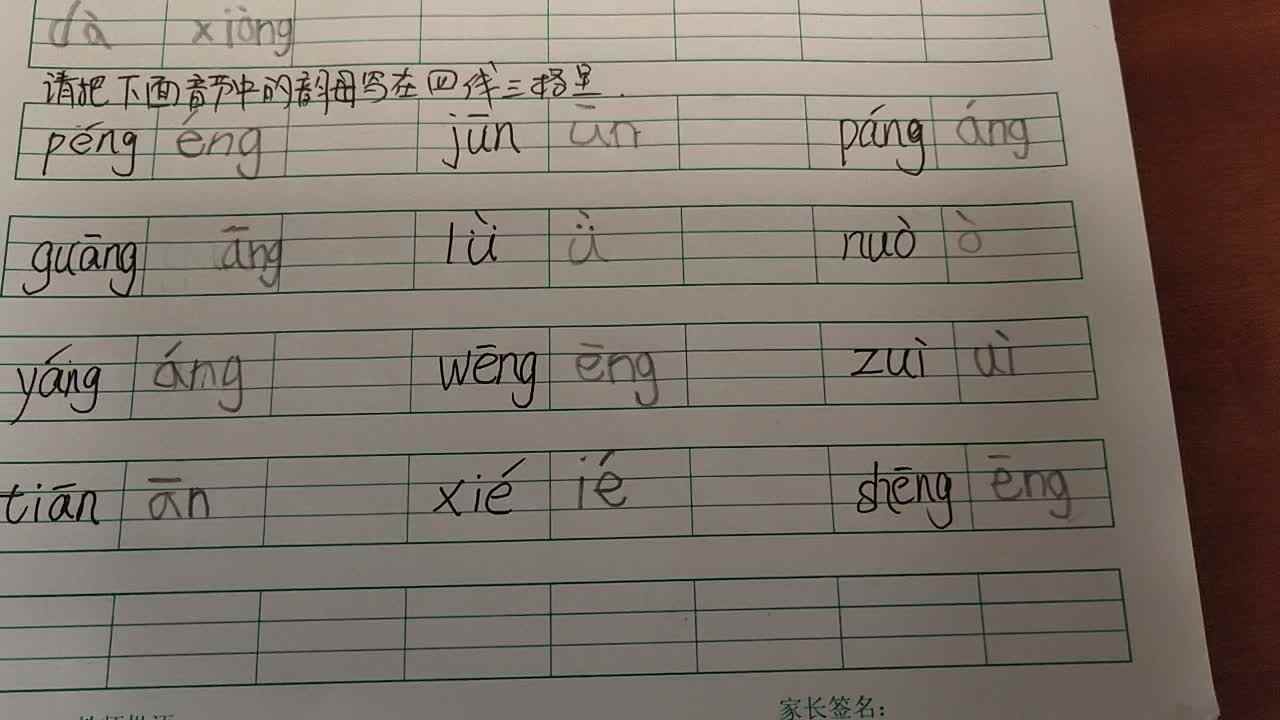 dà xiòng
请把下面音节中的韵母写在四线三格里.
péng éng jūn ūn páng áng
guāng āng lǜ ǜ nuò ò
yáng áng wēng ēng zuì uì
tiān ān xié ié shēng ēng
家长签名: